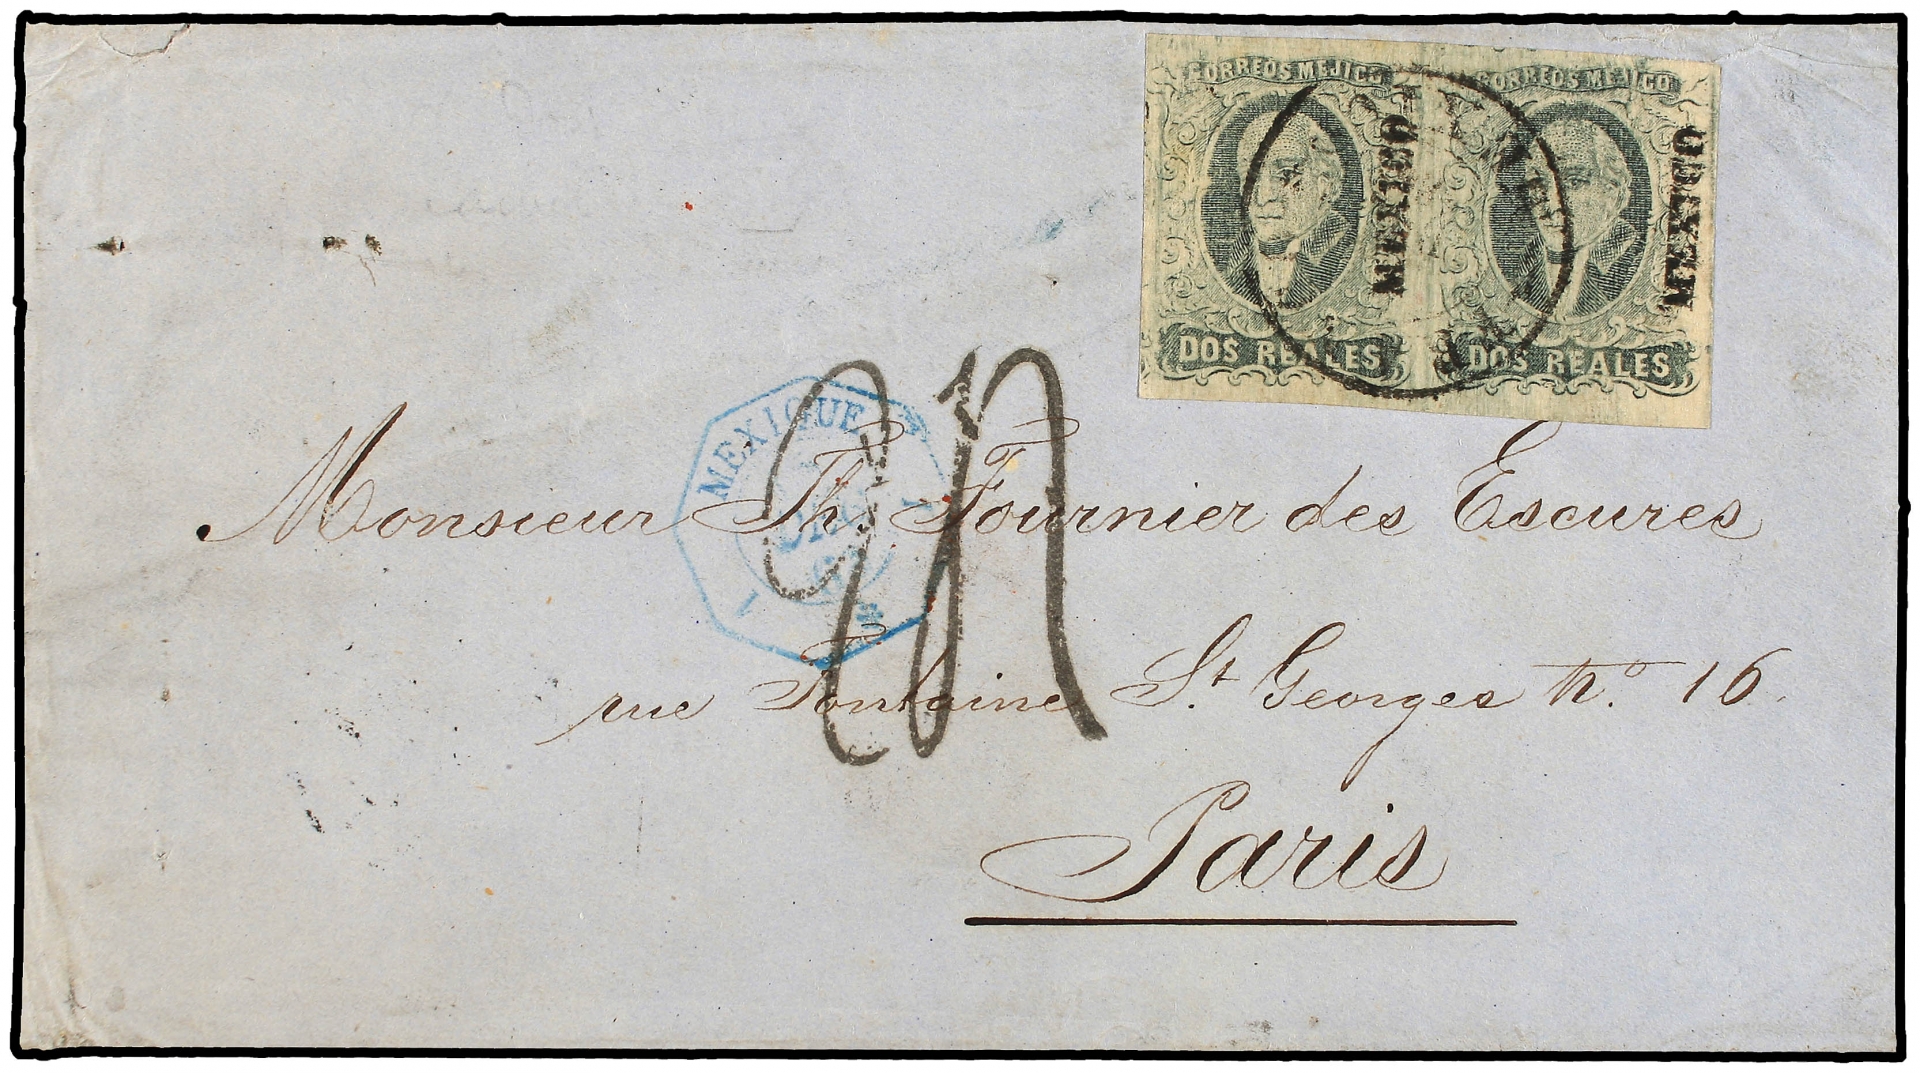 CORREOS MEJICO CORREOS MEJICO
MEXICO MEXICO
DOS REALES DOS REALES
MEXIQUE
Monsieur Th. Fournier des Escures
rue Fontaine St. Georges No. 16
Paris